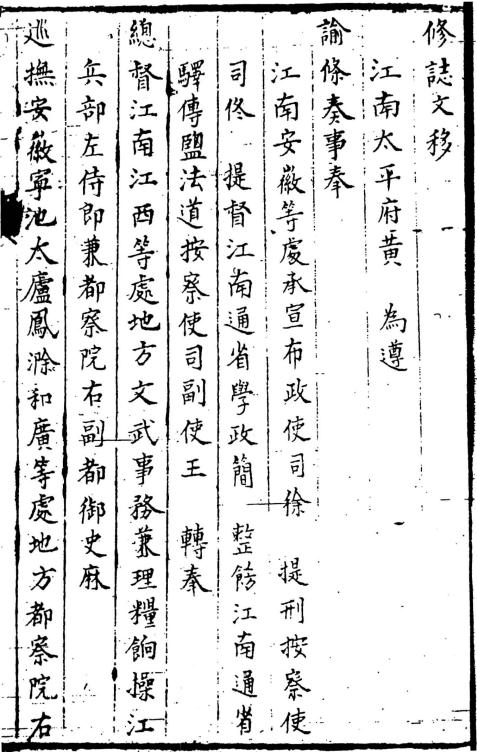 修誌文移
江南太平府黃　為遵
諭條奏事奉
江南安徽等處承宣布政使司徐　提刑按察使
司佟　提督江南通省學政簡　整飭江南通省
驛傳鹽法道按察使司副使王　轉奉
總督江南江西等處地方文武事務兼理糧餉操江
兵部左侍郎兼都察院右副都御史麻
巡撫安徽寧池太廬鳳滁和廣等處地方都察院右